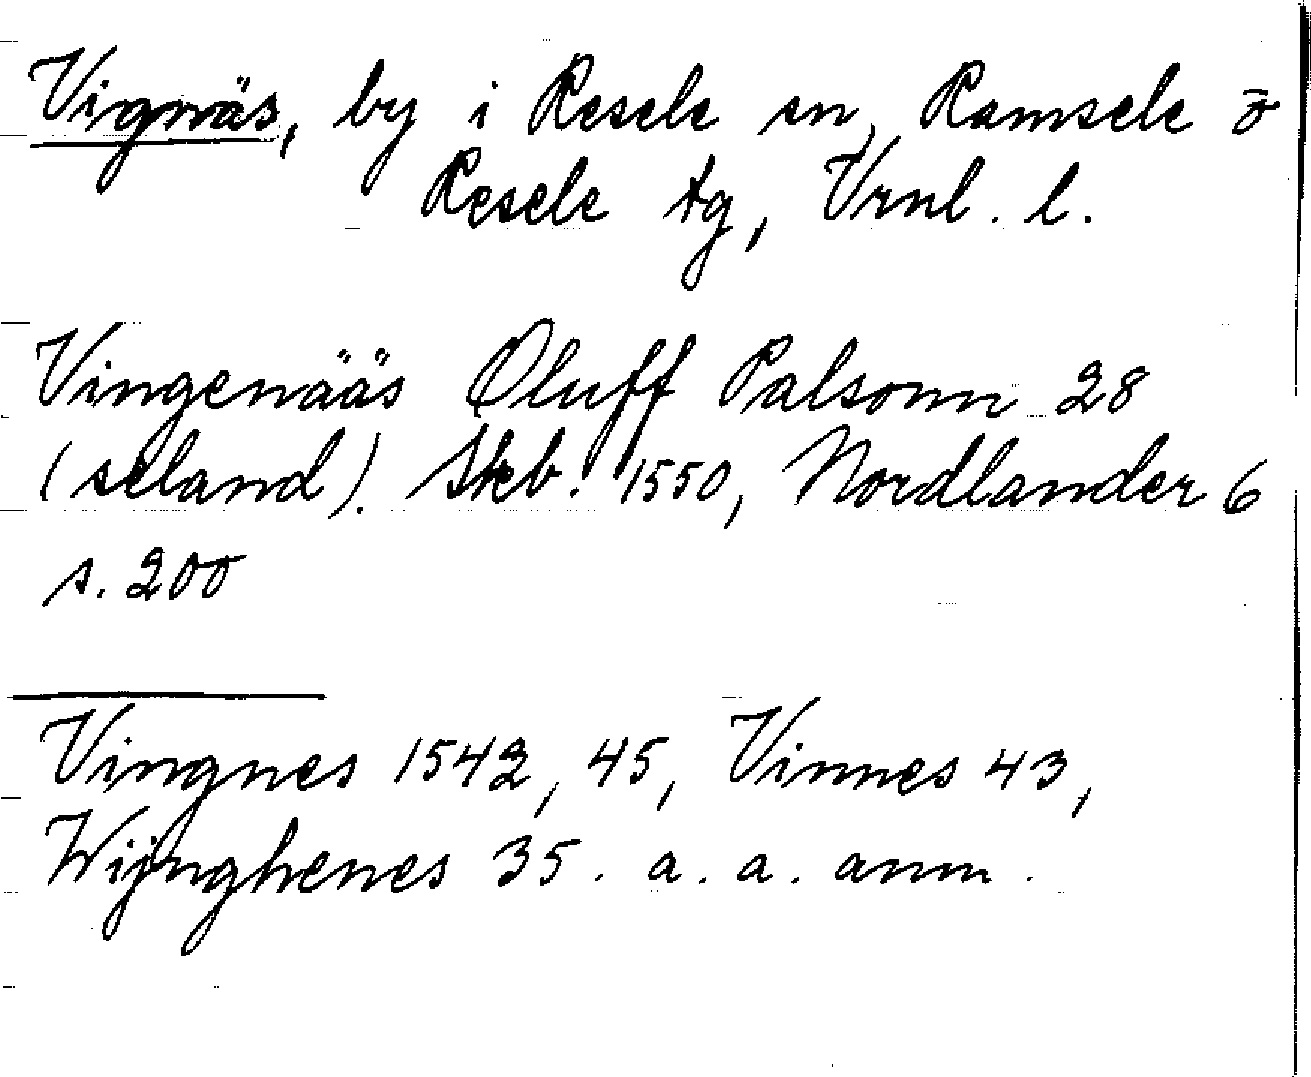 Vignäs, by i Resele sn, Ramsele o
Resele tg, Vrnl. l.
Vingenääs Oluff Palsonn 28
(seland). Skb. 1550, Nordlander 6
s. 200
Vingnes 1542, 45, Vinnes 43,
Wijnghenes 35. a. a. anm.